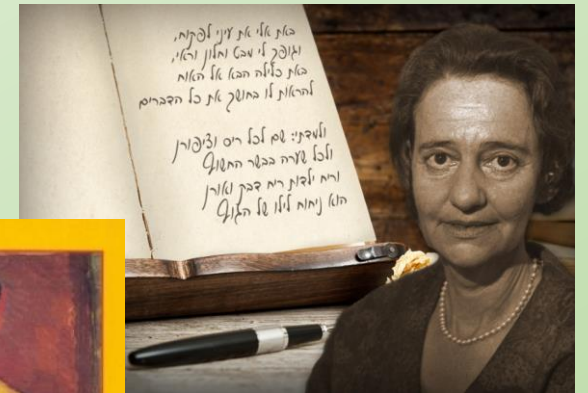 באת אלי את עיני לפקוח,
וגופך לי מבט וחלון וראי,
באת כלילה הבא אל האוח
להראות לו בחושך את כל הדברים
ולמדתי: שם לכל ריס וציפורן
ולכל שערה בבשר החשוף
וריח ילדות ריח דבק ואורן
הוא ניחוח לילו של הגוף